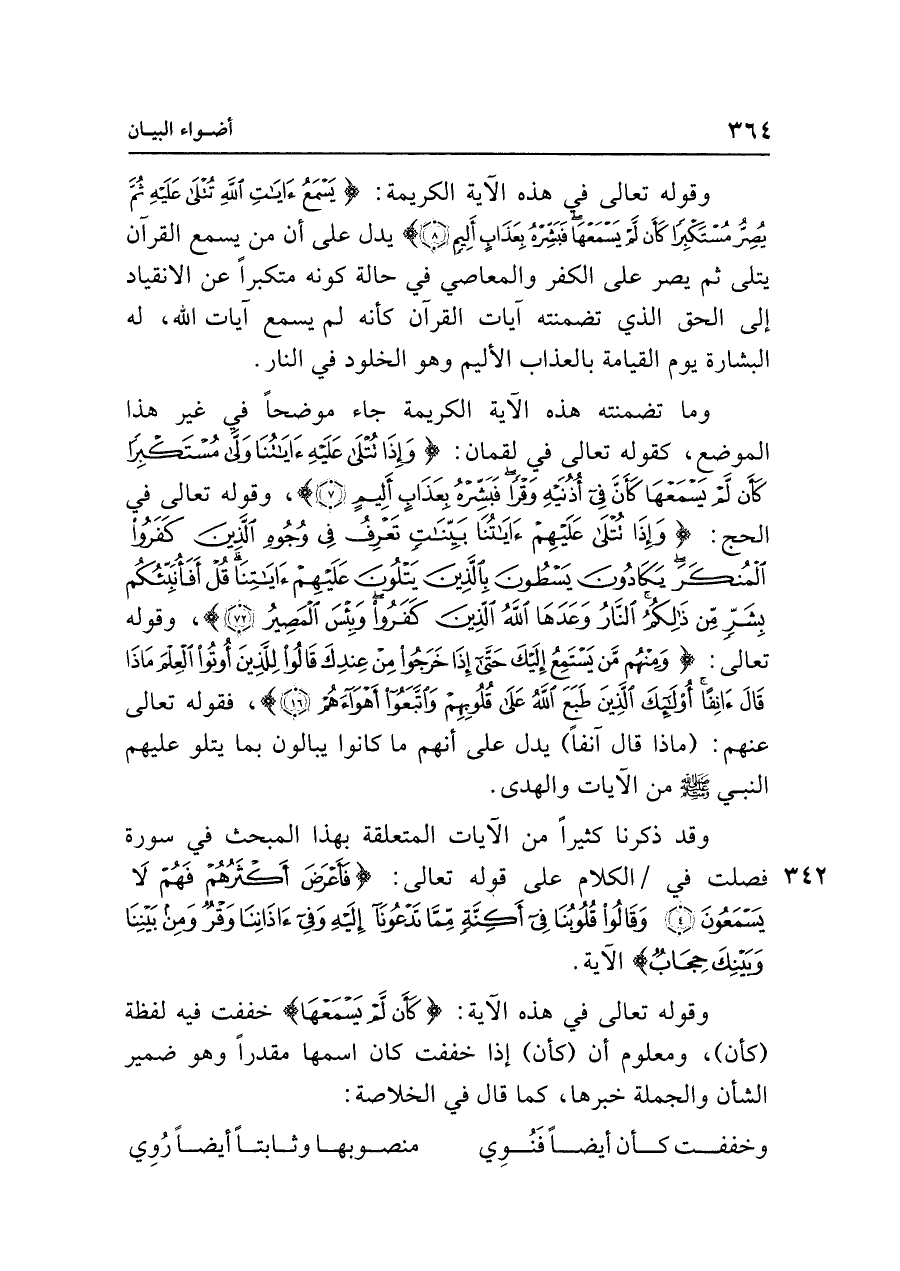 ٣٦٤ أضواء البيان
وقوله تعالى في هذه الآية الكريمة: ﴿ يَسْمَعُ ءَايَٰتِ ٱللَّهِ تُتْلَىٰ عَلَيْهِ ثُمَّ
يُصِرُّ مُسْتَكْبِرًا كَأَن لَّمْ يَسْمَعْهَا ۖ فَبَشِّرْهُ بِعَذَابٍ أَلِيمٍ ﴿٨﴾ ﴾ يدل على أن من يسمع القرآن
يتلى ثم يصر على الكفر والمعاصي في حالة كونه متكبراً عن الانقياد
إلى الحق الذي تضمنته آيات القرآن كأنه لم يسمع آيات الله، له
البشارة يوم القيامة بالعذاب الأليم وهو الخلود في النار.
وما تضمنته هذه الآية الكريمة جاء موضحاً في غير هذا
الموضع، كقوله تعالى في لقمان: ﴿ وَإِذَا تُتْلَىٰ عَلَيْهِ ءَايَٰتُنَا وَلَّىٰ مُسْتَكْبِرًا
كَأَن لَّمْ يَسْمَعْهَا كَأَنَّ فِىٓ أُذُنَيْهِ وَقْرًا ۖ فَبَشِّرْهُ بِعَذَابٍ أَلِيمٍ ﴿٧﴾ ﴾، وقوله تعالى في
الحج: ﴿ وَإِذَا تُتْلَىٰ عَلَيْهِمْ ءَايَٰتُنَا بَيِّنَٰتٍ تَعْرِفُ فِى وُجُوهِ ٱلَّذِينَ كَفَرُوا۟
ٱلْمُنكَرَ ۖ يَكَادُونَ يَسْطُونَ بِٱلَّذِينَ يَتْلُونَ عَلَيْهِمْ ءَايَٰتِنَا ۗ قُلْ أَفَأُنَبِّئُكُم
بِشَرٍّ مِّن ذَٰلِكُمُ ۗ ٱلنَّارُ وَعَدَهَا ٱللَّهُ ٱلَّذِينَ كَفَرُوا۟ ۖ وَبِئْسَ ٱلْمَصِيرُ ﴿٧٢﴾ ﴾، وقوله
تعالى: ﴿ وَمِنْهُم مَّن يَسْتَمِعُ إِلَيْكَ حَتَّىٰٓ إِذَا خَرَجُوا۟ مِنْ عِندِكَ قَالُوا۟ لِلَّذِينَ أُوتُوا۟ ٱلْعِلْمَ مَاذَا
قَالَ ءَانِفًا ۚ أُو۟لَٰٓئِكَ ٱلَّذِينَ طَبَعَ ٱللَّهُ عَلَىٰ قُلُوبِهِمْ وَٱتَّبَعُوٓا۟ أَهْوَآءَهُمْ ﴿١٦﴾ ﴾، فقوله تعالى
عنهم: (ماذا قال آنفاً) يدل على أنهم ما كانوا يبالون بما يتلو عليهم
النبي ﷺ من الآيات والهدى.
وقد ذكرنا كثيراً من الآيات المتعلقة بهذا المبحث في سورة
٣٤٢ فصلت في / الكلام على قوله تعالى: ﴿ فَأَعْرَضَ أَكْثَرُهُمْ فَهُمْ لَا
يَسْمَعُونَ ﴿٤﴾ وَقَالُوا۟ قُلُوبُنَا فِىٓ أَكِنَّةٍ مِّمَّا تَدْعُونَآ إِلَيْهِ وَفِىٓ ءَاذَانِنَا وَقْرٌ وَمِنۢ بَيْنِنَا
وَبَيْنِكَ حِجَابٌ ﴾ الآية.
وقوله تعالى في هذه الآية: ﴿ كَأَن لَّمْ يَسْمَعْهَا ﴾ خففت فيه لفظة
(كأن)، ومعلوم أن (كأن) إذا خففت كان اسمها مقدراً وهو ضمير
الشأن والجملة خبرها، كما قال في الخلاصة:
وخففت كأن أيضاً فَنُوِي منصوبها وثابتاً أيضاً رُوِي